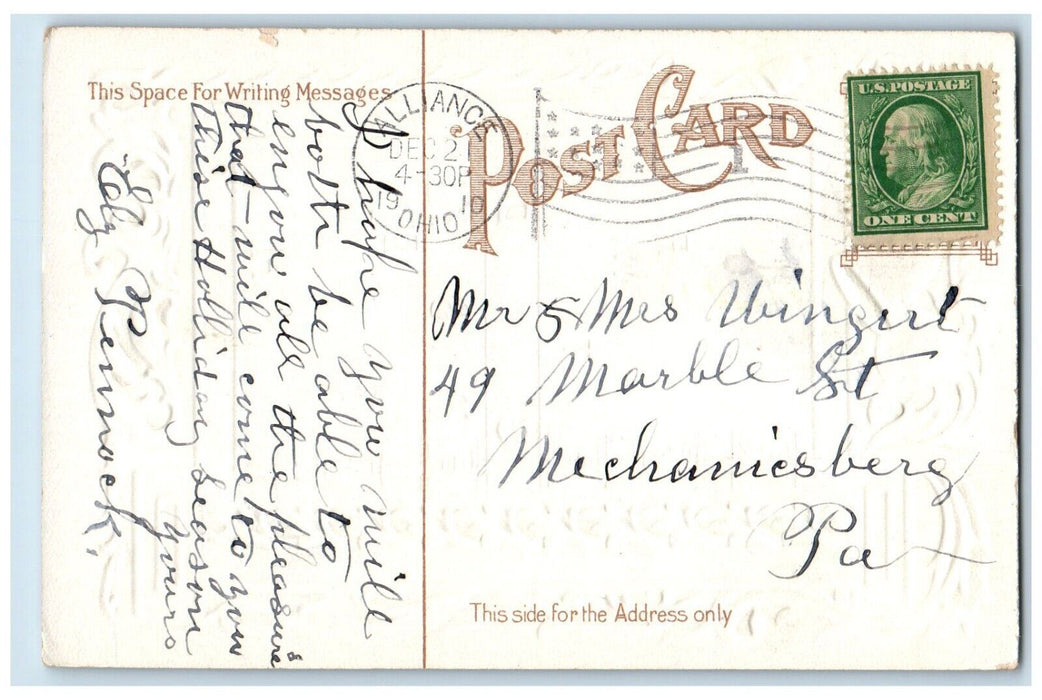 This Space For Writing Messages
I hope you will
both be able to
enjou all the pleasures
that will come to you
this Holliday season
yours
Pennock.
ALLIANCE
DEC 2
4-30P
1910
OHIO
POST CARD
1
U.S. POSTAGE
ONE CENT
Mr & Mrs Wingert
49 Marble St
Mechanicsberg
Pa
This side for the Address only